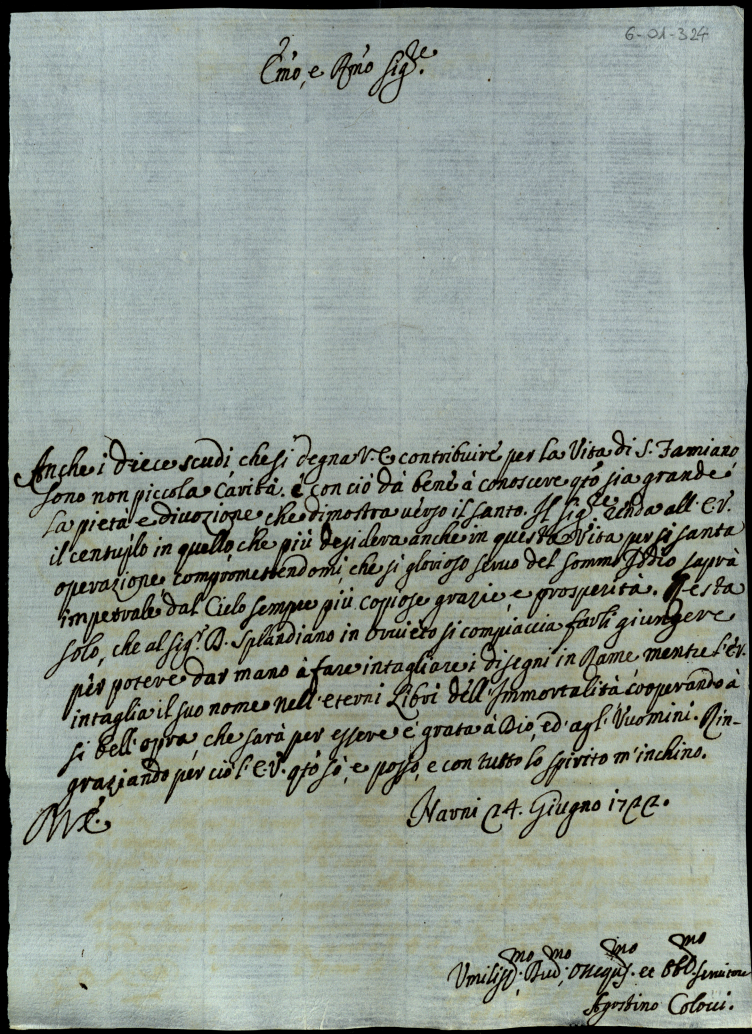 6-01-324
Emo, e Rmo Sig.re
Anche i diece scudi, che si degna V. E. contribuire per la Vita di S. Famiano
sono non piccola Carità. è con ciò dà bene à conoscere qto sia grande
la pietà e divozione che dimostra verso il santo. Il Sig.re renda all'E.V.
il centuplo in quello che più desidera anche in questa Vita per si santa
operazione, compromettendomi, che si glorioso servo del sommo Iddio saprà
impetrale dal Cielo sempre più copiose grazie, e prosperità. Resta
solo, che al sig.r D. Splandiano in Orvieto si compiaccia farli giungere
per potere dar mano à fare intagliare i disegni in Rame mentre l'E.V.
intaglia il suo nome nell'eterni Libri dell'Immortalità cooperando à
si bell'opra, che sarà per essere è grata à Dio, ed'agl'Vuomini. Rin-
graziando per ciò l'E.V. qto sò, e posso, e con tutto lo spirito m'inchino.
Narni 24. Giugno 1722.
Umiliss.mo, Dev.mo, Osseqs.mo et Obb.mo servitore
Agostino Colocci.